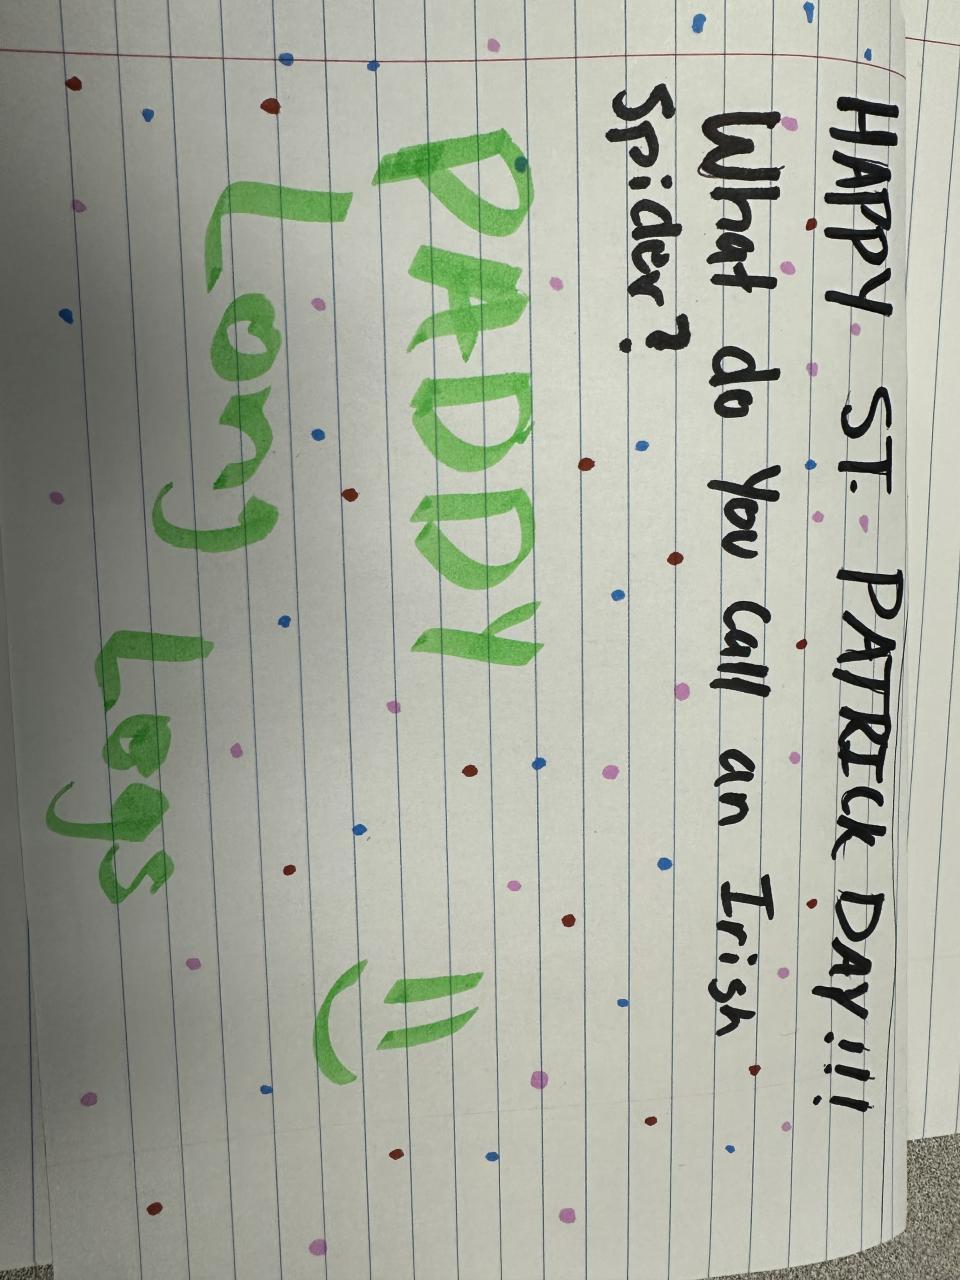 HAPPY ST. PATRICK DAY!!!
What do you call an Irish
Spider?
PADDY
Long Legs